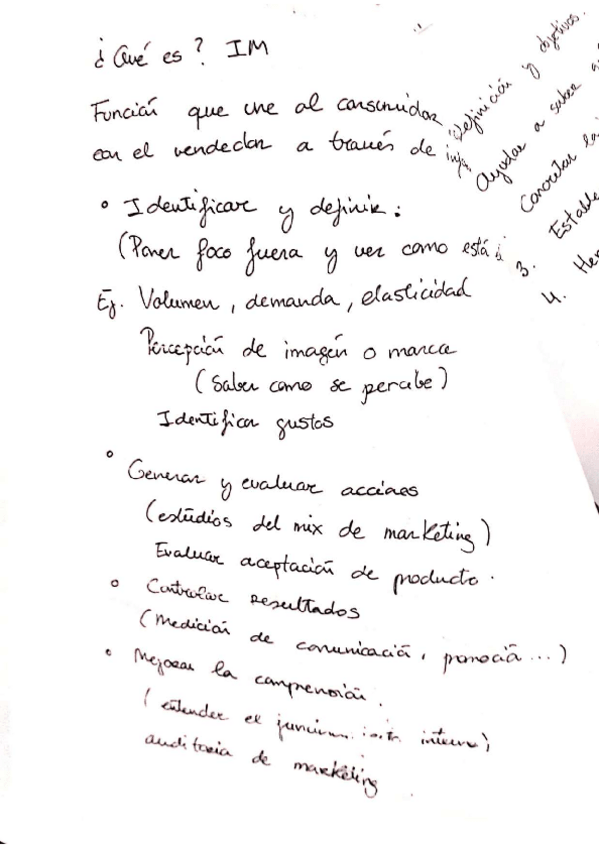 ¿Qué es? IM
Función que une al consumidor
con el vendedor a través de
• Identificar y definir:
(Poner foco fuera y ver como está
Ej. Volumen, demanda, elasticidad
Percepción de imagen o marca
(Saber como se percibe)
Identificar gustos
• Generar y evaluar acciones
(estudios del mix de marketing)
Evaluar aceptación de producto.
• Controlar resultados
(Medición de comunicación, promoción...)
• Mejorar la comprensión.
(entender el interno)
auditoria de marketing
Definición y objetivos.
Ayudar a saber
Concretar
3. Estable
4. Her